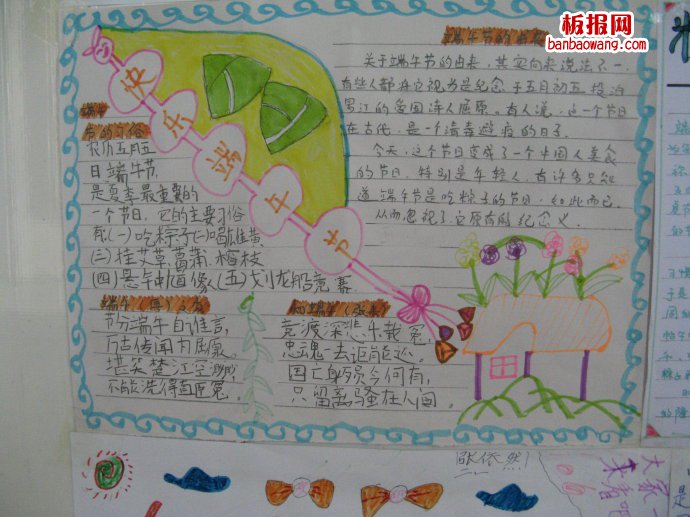 板报网
banbaowang.com
快乐端午节
端午节的由来
关于端午节的由来，其实向来说法不一，
有些人都将它视为是纪念于五月初五投泊
罗江的爱国诗人屈原。有人说，这一个节日
在古代，是一个清毒避疫的日子。
今天，这个节日变成了一个中国人美食
的节日，特别是年轻人，有许多只知
道端午节是吃粽子的节日，如此而已，
从而忽视了它原有的纪念义。
端午
节的习俗
农历五月五
日端午节，
是夏季最重要的
一个节日，它的主要习俗
有（一）吃粽子（二）喝雄黄
（三）挂艾草菖蒲、榕枝
（四）悬钟馗像（五）划龙船竞赛
端午（唐）文秀
节分端午自谁言，
万古传闻为屈原。
堪笑楚江空渺渺，
不能洗得直臣冤。
和端午（张耒）
竞渡深悲千载冤，
忠魂一去讵能还。
国亡身殒今何有，
只留离骚在人间。
张依然
大家
来